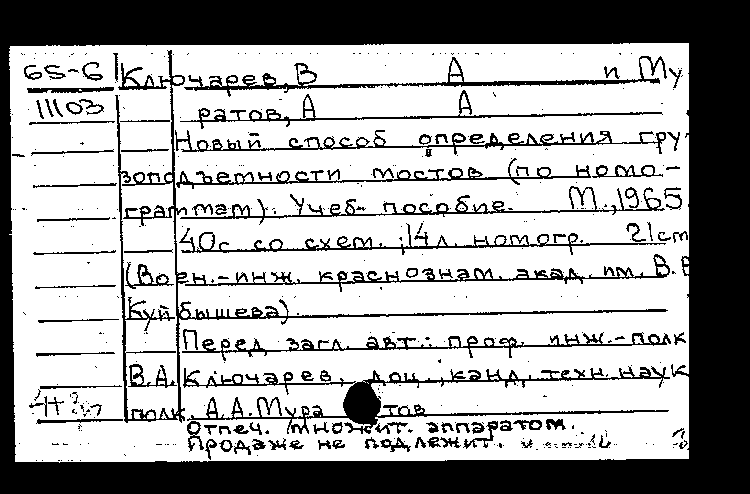 65-6 Ключарев, В А и Му
11103 ратов, А А
Новый способ определения гру-
зоподъемности мостов (по номо-
граммам). Учеб. пособие. М., 1965.
40с со схем.; 14л. номогр. 21см
(Воен.-инж. краснознам. акад. им. В.В
Куйбышева).
Перед загл. авт.: проф. инж.-полк
В.А. Ключарев, доц., канд. техн. наук
полк. А.А. Мура тов
Отпеч. множит. аппаратом.
Продаже не подлежит.